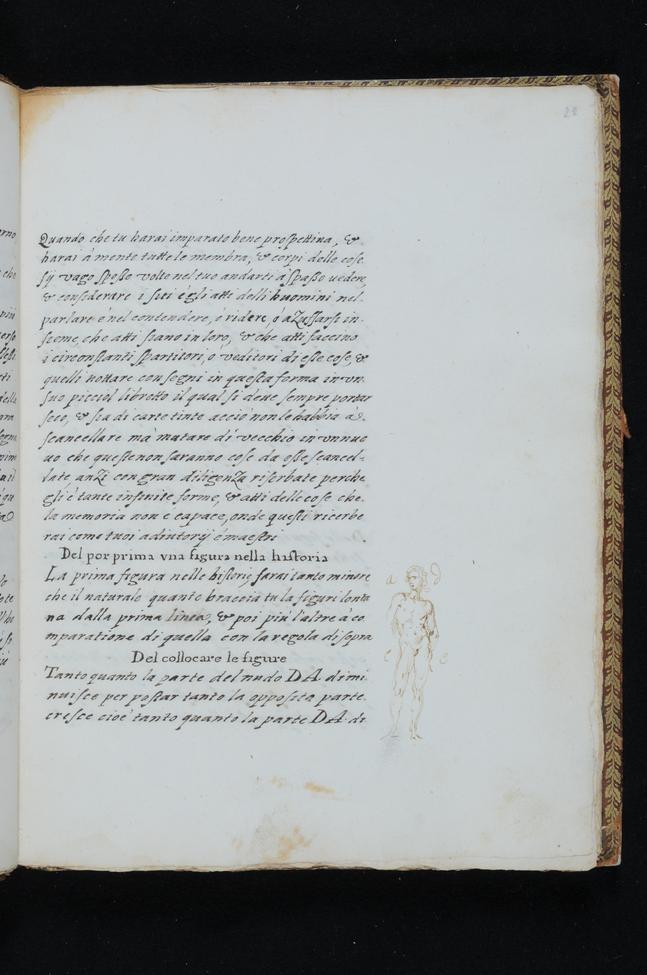 28
Quando che tu harai imparato bene prospettiua, &
harai à mente tutte le membra, & corpi delle cose
sij vago spesso volte nel tuo andarti à spasso uedere,
& considerare i siti e gli atti delli huomini nel
parlare e nel contendere, o ridere, ò aZuffarsi in-
sieme, che atti siano in loro, & che atti faccino
i circonstanti spartitori, o veditori di esse cose, &
quelli nottare con segni in questa forma in vn
suo picciol libretto il qual si deue sempre portar
seco, & sia di carte tinte acciò non le habbia à
scancellare mà mutare di vecchio in vn nuo
uo che queste non saranno cose da esse scancel-
late, anZi con gran diligenZa riserbate perche
gli è tante infinite forme, & atti delle cose che
la memoria non è capace, onde questi riserbe
rai come tuoi adiutorij e maestri
Del por prima vna figura nella historia
La prima figura nelle historie, farai tanto minore
che il naturale quante braccia tu la figuri lonta
na dalla prima linea, & poi piu l'altre à co
mparatione di quella con la regola di sopra
a D
Del collocare le figure
c
Tanto quanto la parte del nudo DA dimi
nuisce per postar tanto la opposita parte
cresce cioè tanto quanto la parte DA di